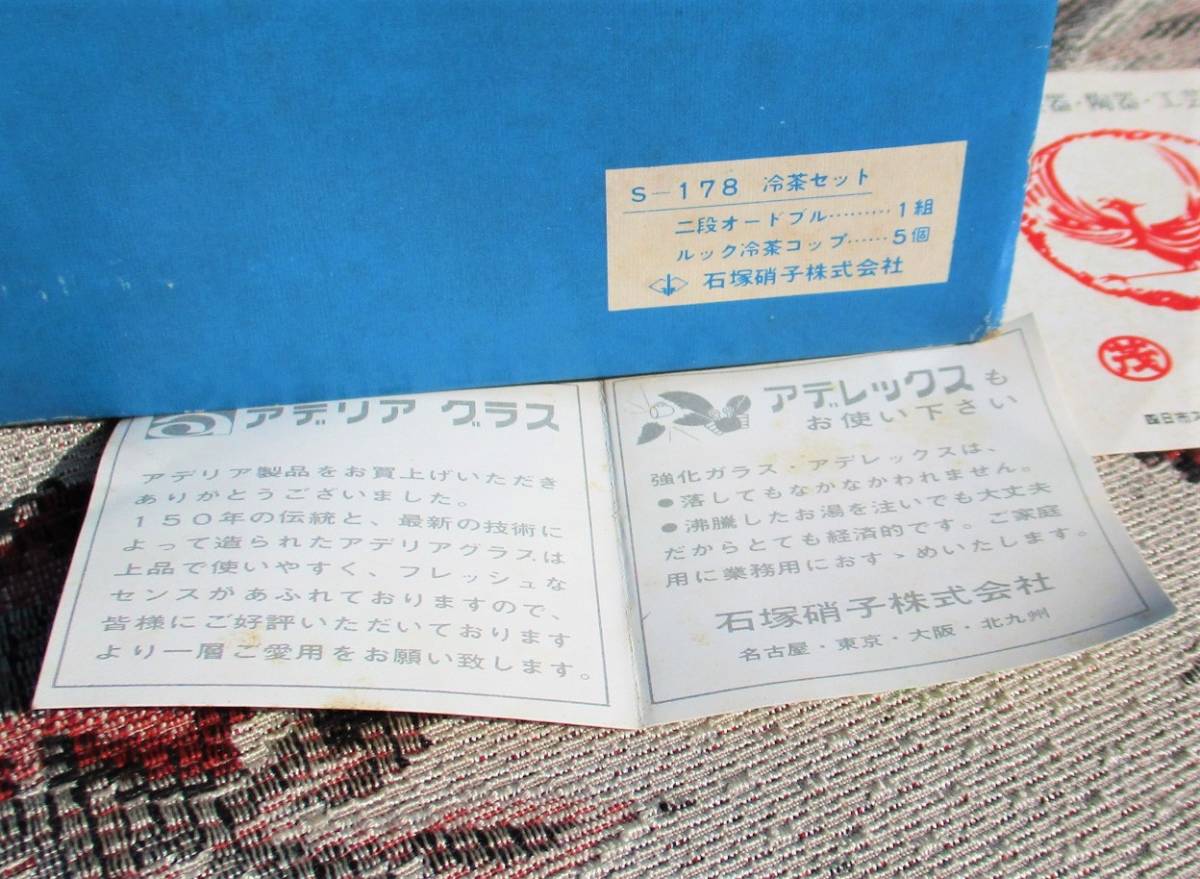 S-178 冷茶セット
二段オードブル………1組
ルック冷茶コップ……5個
石塚硝子株式会社
アデリア グラス
アデリア製品をお買上げいただき
ありがとうございました。
150年の伝統と、最新の技術に
よって造られたアデリアグラスは
上品で使いやすく、フレッシュな
センスがあふれておりますので、
皆様にご好評いただいております
より一層ご愛用をお願い致します。
アデレックスも
お使い下さい
強化ガラス・アデレックスは、
●落してもなかなかわれません。
●沸騰したお湯を注いでも大丈夫
だからとても経済的です。ご家庭
用に業務用におすゝめいたします。
石塚硝子株式会社
名古屋・東京・大阪・北九州
茂
四日市